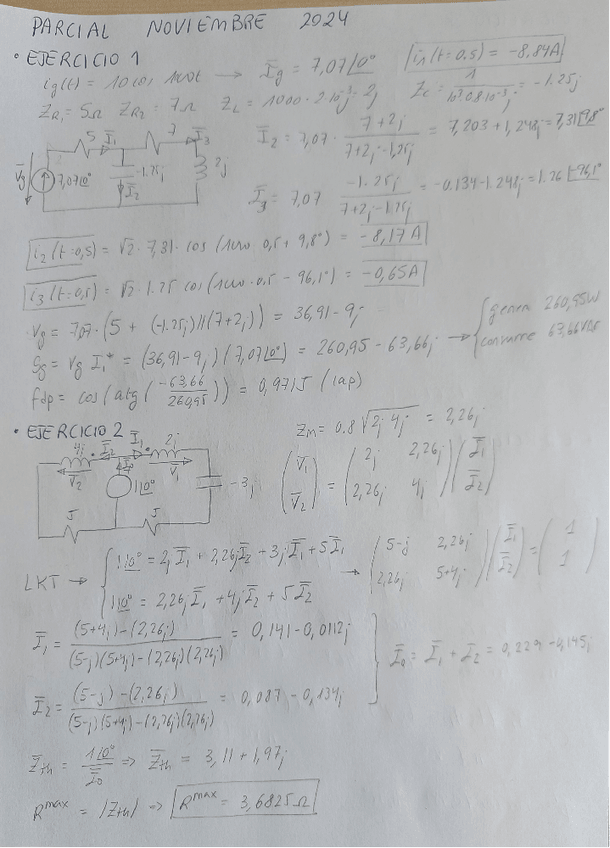 PARCIAL NOVIEMBRE 2024
• EJERCICIO 1
ig(t) = 10 cos 1000t → Īg = 7,07∠0° i₁(t=0,5) = -8,84A
Z_R₁ = 5Ω Z_R₂ = 7Ω Z_L = 1000·2·10⁻³j = 2j Z_C = 1/(10³·0.8·10⁻³j) = -1.25j
5 Ī₁ 7 Ī₃
V̄g 7,07∠0° -1.25j Ī₂ 2j
Ī₂ = 7,07 · (7+2j)/(7+2j-1,25j) = 7,203 + 1,248j = 7,31∠9,8°
Ī₃ = 7,07 (-1.25j)/(7+2j-1.25j) = -0.134-1.248j = 1.26∠-96,1°
i₂(t=0,5) = √2 · 7,31 · cos (1000·0,5 + 9,8°) = -8,17A
i₃(t=0,5) = √2 · 1.25 cos (1000·0.5 - 96,1°) = -0,65A
Vg = 7,07·(5 + (-1.25j)||(7+2j)) = 36,91-9j
Sg = Vg I₁* = (36,91-9j)(7,07∠0°) = 260,95 - 63,66j → { genera 260,95W
consume 63,66VAr
fdp = cos(atg(-63,66/260,95)) = 0,9715 (cap)
• EJERCICIO 2
Z_M = 0.8√(2j·4j) = 2,26j
4j Ī₂ Ī₁ 2j
V̄₂ Ī₀ V̄₁
1∠0° -3j
5 5
(V̄₁ V̄₂) = (2j 2,26j 2,26j 4j)(Ī₁ Ī₂)
LKT → { 1∠0° = 2jĪ₁ + 2,26jĪ₂ - 3jĪ₁ + 5Ī₁
1∠0° = 2,26jĪ₁ + 4jĪ₂ + 5Ī₂
→ (5-j 2,26j 2,26j 5+4j)(Ī₁ Ī₂) = (1 1)
Ī₁ = ((5+4j)-(2,26j))/((5-j)(5+4j)-(2,26j)(2,26j)) = 0,141 - 0,0112j
Ī₂ = ((5-j)-(2,26j))/((5-j)(5+4j)-(2,26j)(2,26j)) = 0,087 - 0,134j
Ī₀ = Ī₁ + Ī₂ = 0,229 - 0,145j
Z̄th = 1∠0°/Ī₀ ⇒ Z̄th = 3,11 + 1,97j
Rᵐᵃˣ = |Zth| ⇒ Rᵐᵃˣ = 3,6825Ω